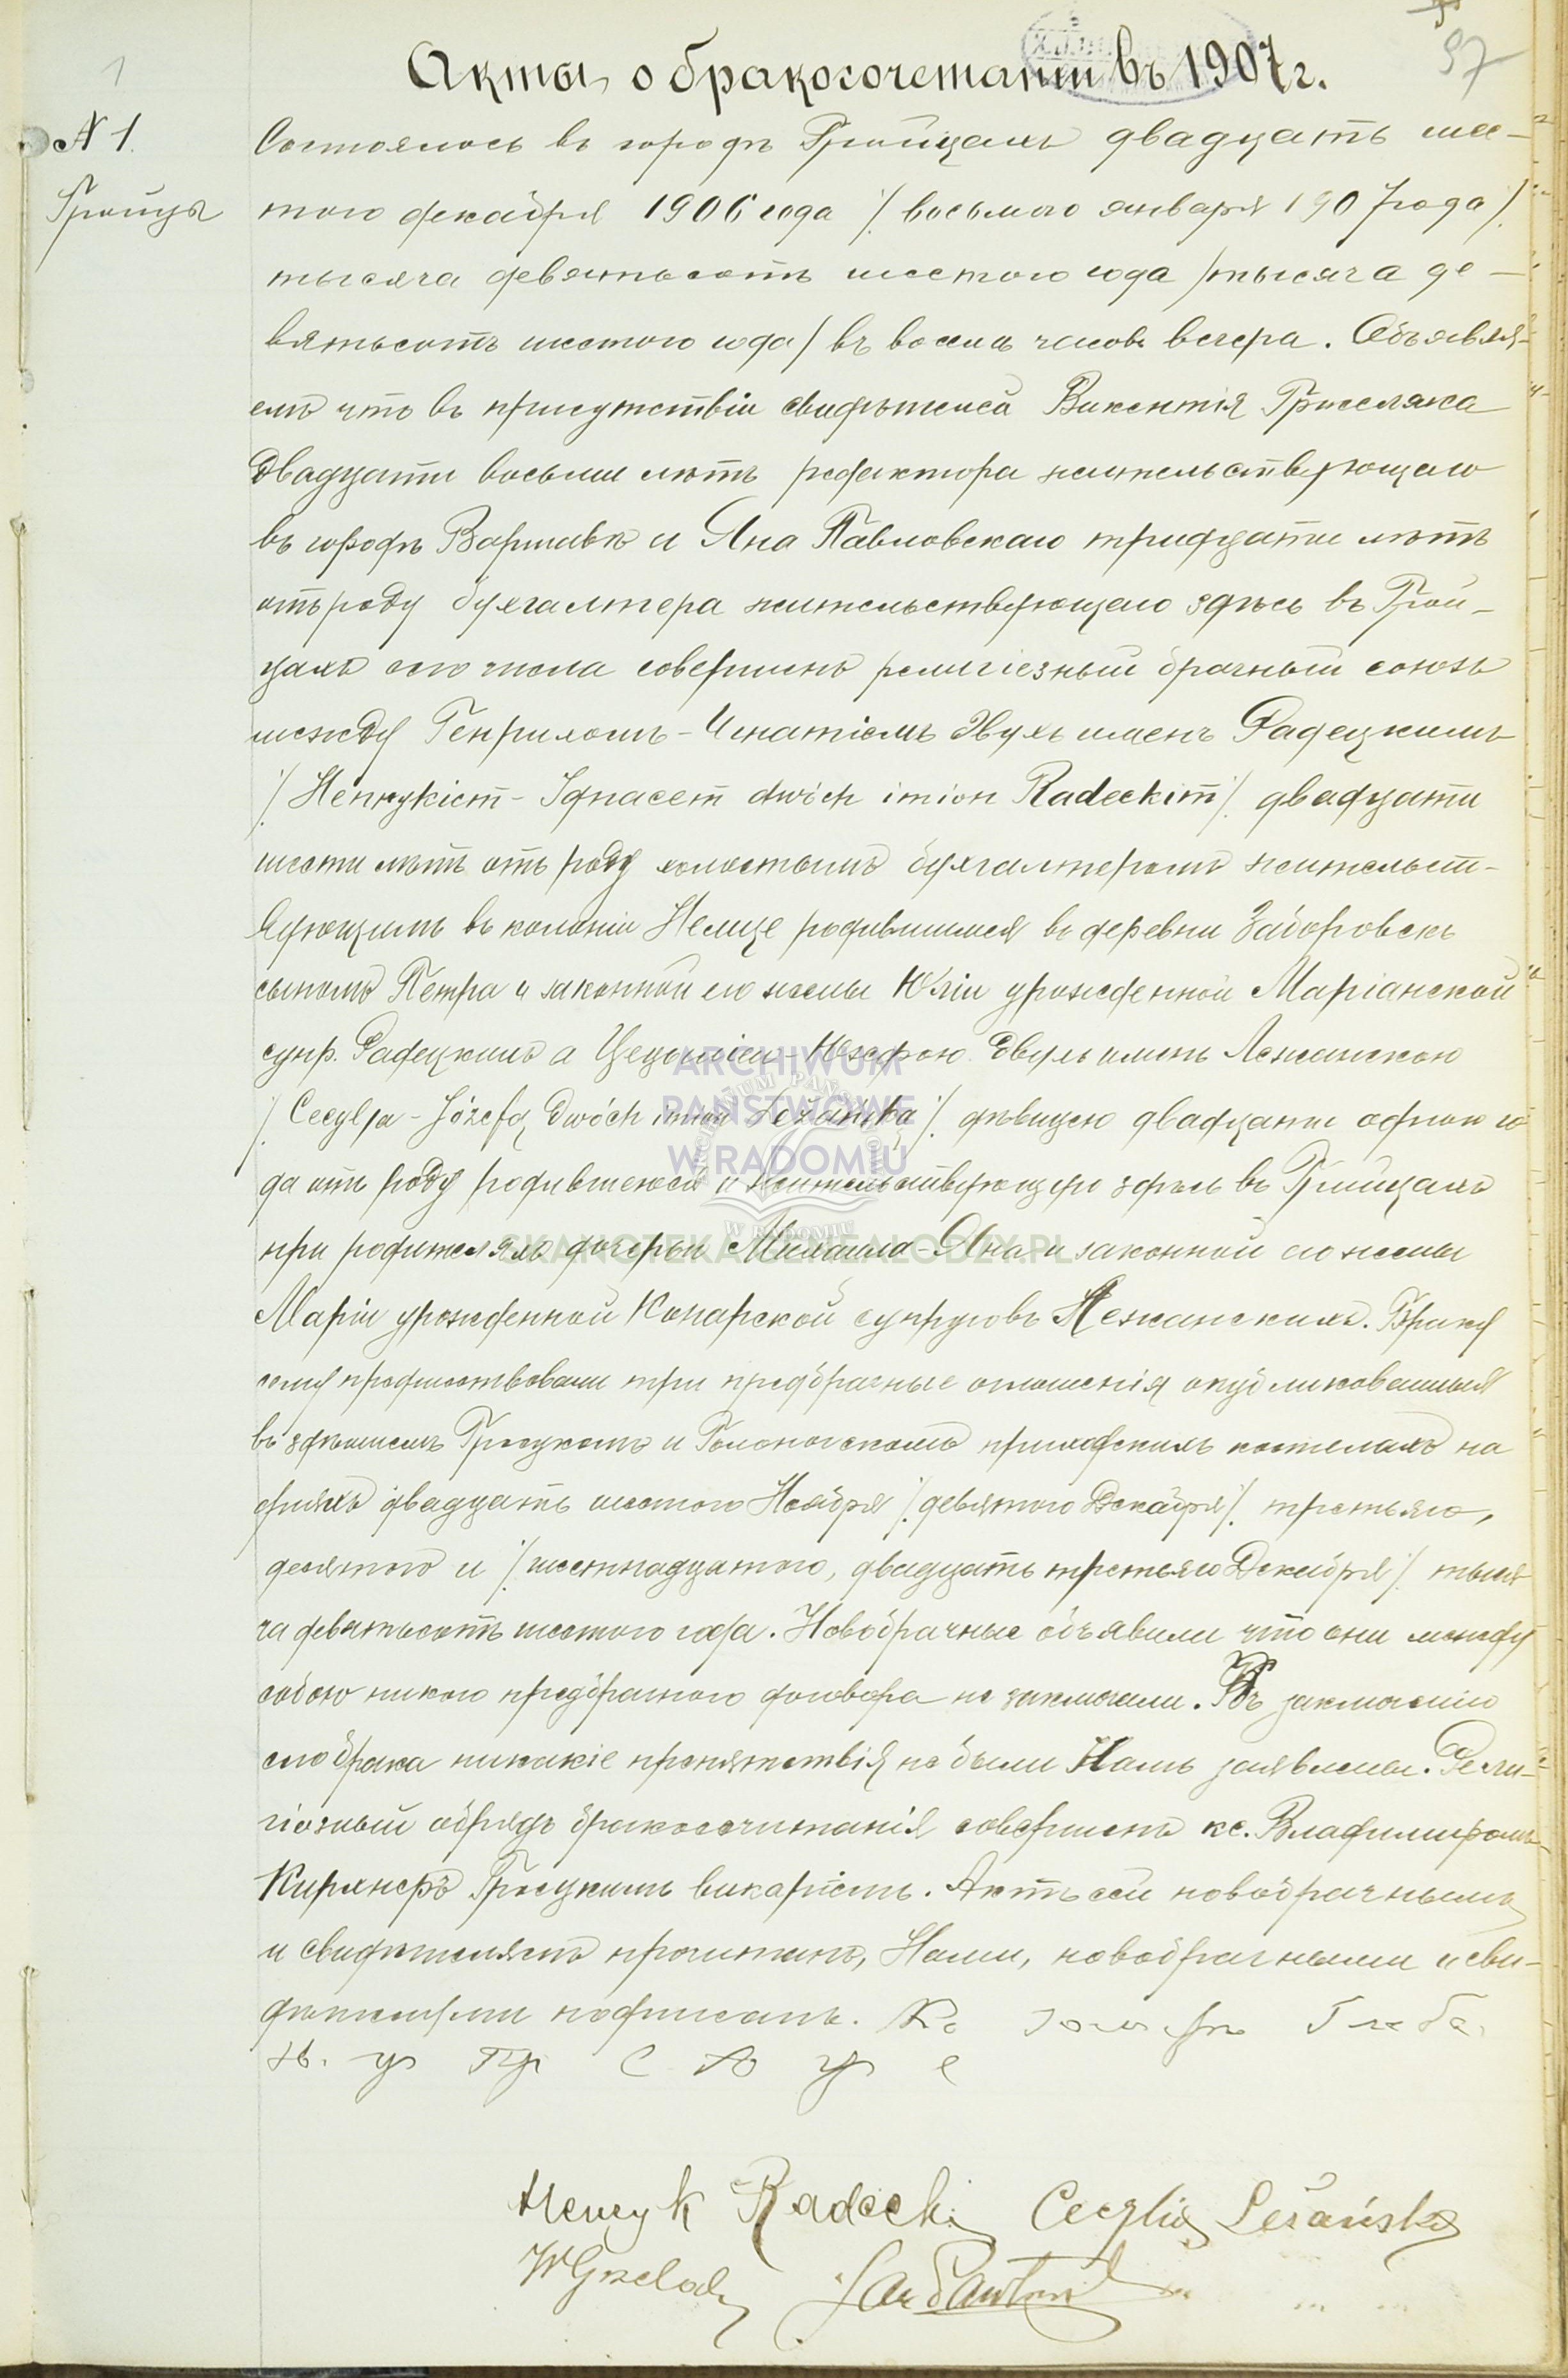 1
97
Акты о бракосочетании въ 1907 г.
№ 1.
Гройцы
Состоялось въ городѣ Гройцахъ двадцать шес-
таго декабря 1906 года /. восьмого января 1907 года /.
тысяча девятьсотъ шестого года / тысяча де-
вятьсотъ шестого года / въ восемь часовъ вечера. Объявля-
емъ что въ присутствіи свидѣтелей Викентія
двадцати восьми лѣтъ редактора жительствующаго
въ городѣ Варшавѣ и Яна Павловскаго тридцати лѣтъ
отъ роду бухгалтера жительствующаго здѣсь въ Грой-
цахъ сего числа совершенъ религіозный брачный союзъ
между Генрихомъ-Игнатіемъ двухъ именъ Радецкимъ
/. Henrykiem-Ignacem dwóch imion Radeckim /. двадцати
шести лѣтъ отъ роду холостымъ бухгалтеромъ жительст-
вующимъ въ колоніи родившимся въ деревни
сыномъ Петра и законной его жены Юліи урожденной Маріанской
супр. Радецкихъ а Цецыліею-Юзефою двухъ именъ Лежанскою
/. Cecylja-Józefą dwóch imion Leżańską /. дѣвицею двадцати одного го
да отъ роду родившеюся и жительствующею здѣсь въ Гройцахъ
при родителяхъ дочерью Михаила-Яна и законной его жены
Маріи урожденной Конарской супруговъ Лежанскихъ. Браку
сему предшествовали три предбрачные оглашенія опубликованныя
въ здѣшнемъ Гроецкомъ и приходскихъ костелахъ на
дняхъ двадцать шестого Ноября /. девятого Декабря /. третьяго,
десятого и /. шестнадцатого, двадцать третьяго Декабря /. тыся
ча девятьсотъ шестого года. Новобрачные объявили что они между
собою никого предбрачного договора не заключали. Къ заключенію
сего брака никакіе препятствія не были Намъ заявлены. Рели-
гіозный обрядъ бракосочитанія совершенъ кс. Владимиромъ
Гроецкимъ викаріемъ. Актъ сей новобрачнымъ
и свидѣтелямъ прочитанъ, Нами, новобрачными и сви-
дѣтелями подписанъ.
Henryk Radecki Cecylia Leżańska
Jan
ARCHIWUM
PAŃSTWOWE
W RADOMIU
SKANOTEKA.GENEALODZY.PL